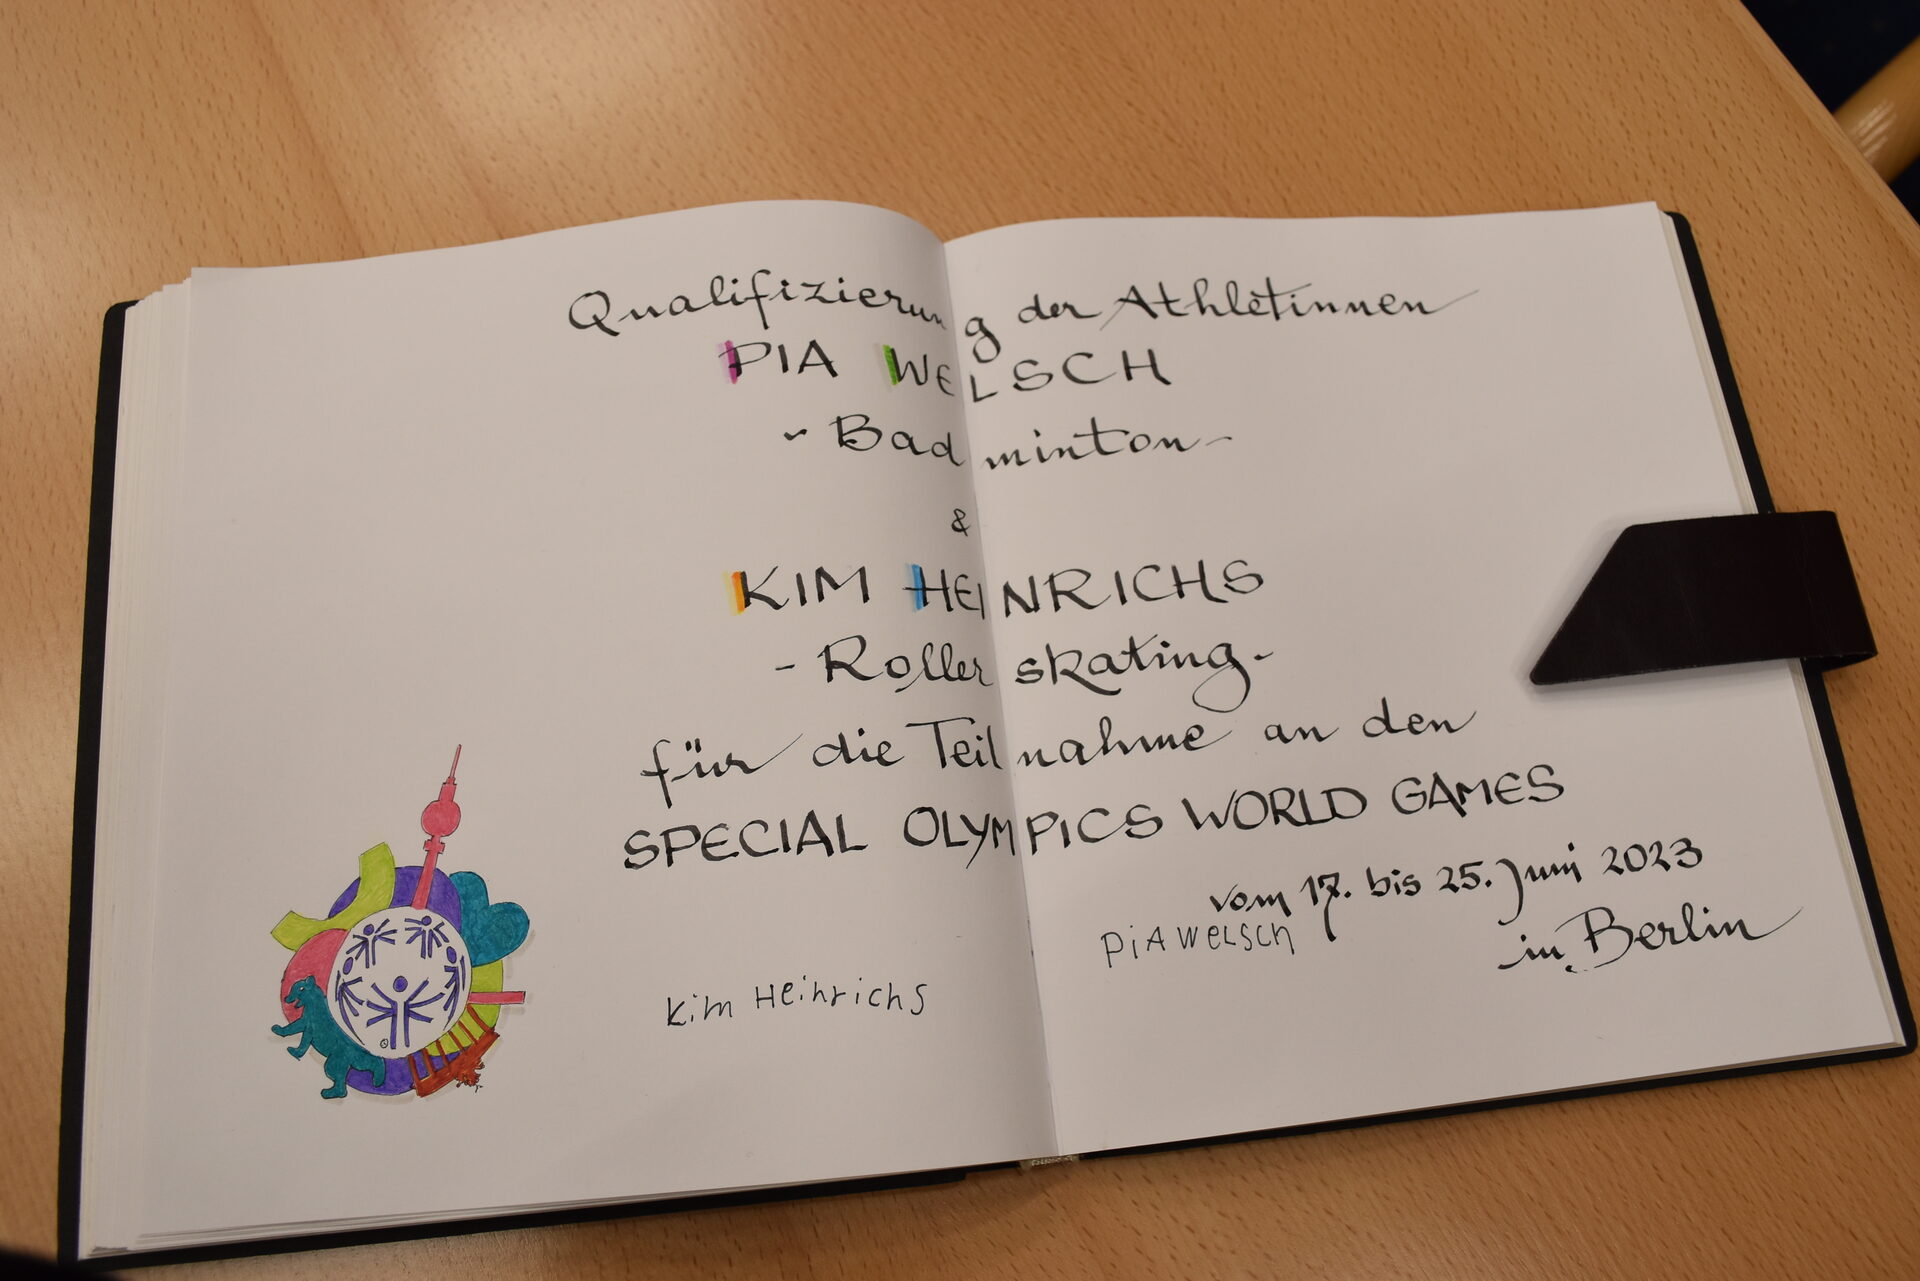 Qualifizierung der Athletinnen
PIA WELSCH
- Badminton -
&
KIM HEINRICHS
- Roller skating -
für die Teilnahme an den
SPECIAL OLYMPICS WORLD GAMES
vom 17. bis 25. Juni 2023
in Berlin
PiA WELSCH
Kim Heinrichs